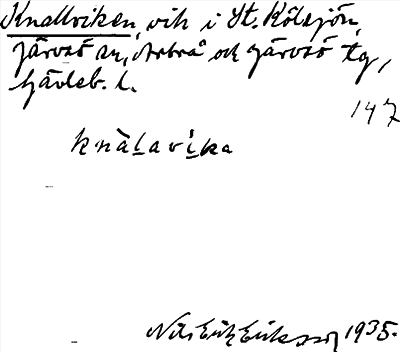 Knallviken, vik i St. Kölsjön,
Järvsö sn, Arbrå och Järvsö tg,
Gävleb. l.
147
knàlavika
Nils Erik Eriksson 1935.